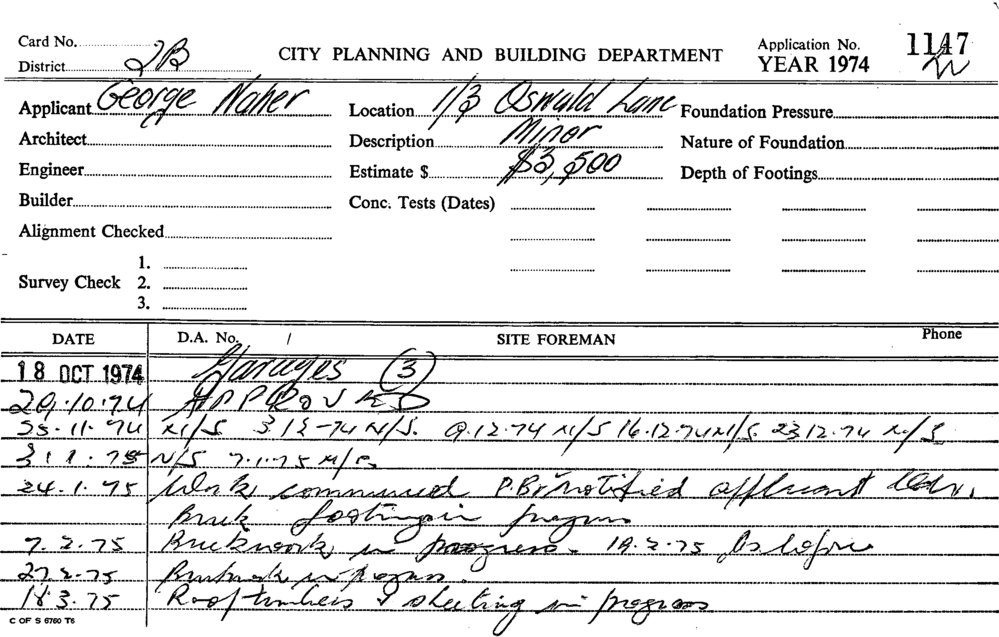 Card No.
District 2B
CITY PLANNING AND BUILDING DEPARTMENT
Application No. 1147
YEAR 1974
Applicant George Naher
Location 1/3 Oswald Lane
Foundation Pressure
Architect
Description Minor
Nature of Foundation
Engineer
Estimate $ $3,500
Depth of Footings
Builder
Conc. Tests (Dates)
Alignment Checked
Survey Check 1. 2. 3.
DATE D.A. No. / SITE FOREMAN Phone
18 OCT 1974 Garages (3)
29.10.74 APPROVED
25.11.74 N/S 3.12-74 N/S. 9.12-74 N/S 16.12.74 N/S. 23.12.74 N/S
3.1.75 N/S 7.1.75 N/S
24.1.75 Work commenced P.Br notified applicant
Brick footings in progress
7.2.75 Brickwork in progress. 19.2.75 As before
27.2.75 Brickwork in progress.
18.3.75 Roof timbers & sheeting in progress
C OF S 6760 T6